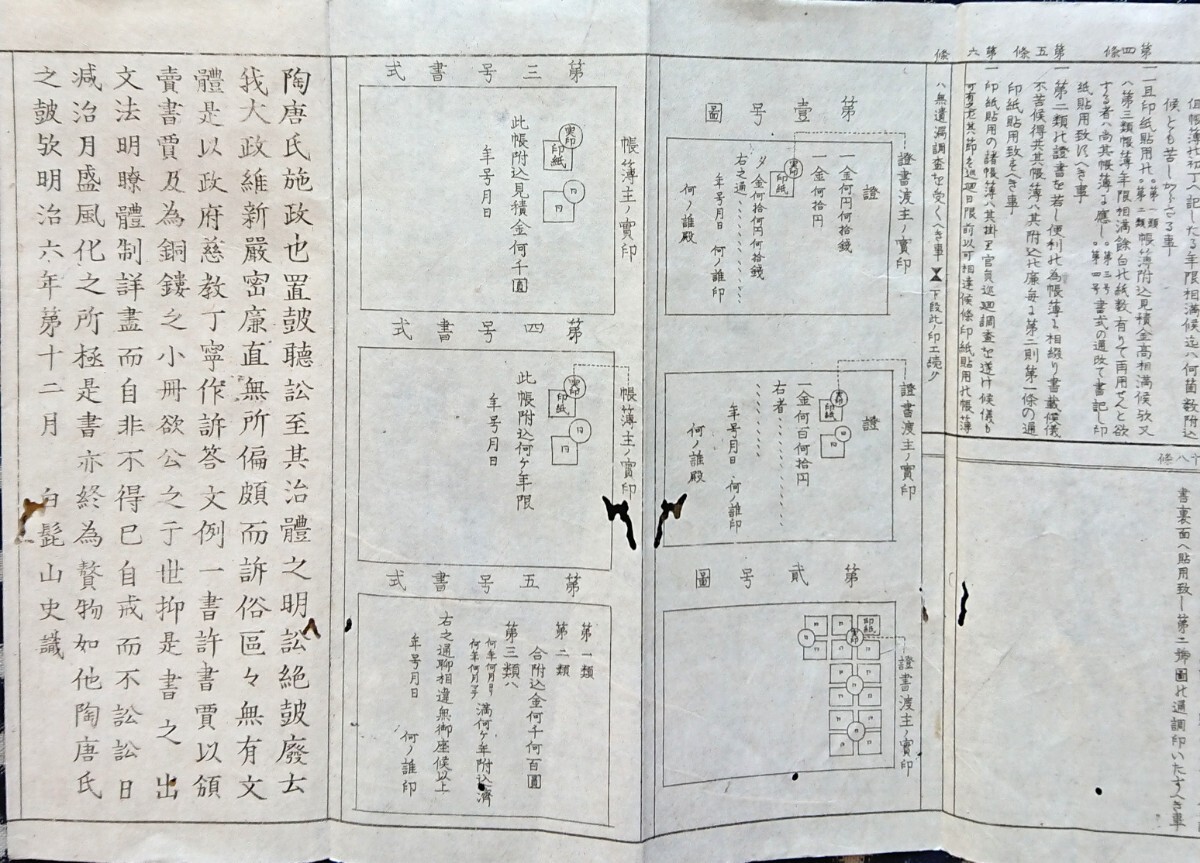 候とも苦しからさる事
第四條
一且印紙貼用代第一類第二類帳簿附込見積金高相満候歟又
ハ第三類帳簿年限相満餘白代紙数有りて再用せんと欲
する者ハ尚其帳簿ゟ應し第三号第四号書式の通改て書記し印
紙貼用致すへき事
第五條
一第二類代證書を若し便利代為帳簿ゟ相綴り書載候儀
不苦候得共其帳簿ハ其附込代廉毎ゟ第二則第一條の通
印紙貼用致すへき事
第六條
一印紙貼用の諸帳簿ハ其掛り官員巡廻調査を遂け候儀も
可有之
ハ無遺漏調査を受くへき事
下段此ノ印エ続ク
十八條
書裏面ヘ貼用致し第二號圖代通調印いたすへき事
第壹号圖
證書渡主ノ實印
證
一金何円何拾錢
一金何拾円
〆金何拾何円何拾錢
右之通
年号月日 何ノ誰印
何ノ誰殿
實印
印紙
證書渡主ノ實印
證
一金何百何拾円
右者
年号月日 何ノ誰印
何ノ誰殿
實印
印紙
第貳号圖
證書渡主ノ實印
印紙
實印
第三号書式
帳簿主ノ實印
實印
印紙
此帳附込見積金何千圓
年号月日
第四号書式
帳簿主ノ實印
實印
印紙
此帳附込何ヶ年限
年号月日
第五号書式
第一類
第二類
合附込金何千何百圓
第三類ハ
何年何月ヨリ何年何月マテ満何ヶ年附込濟
右之通聊相違無御座候以上
年号月日 何ノ誰印
陶唐氏施政也置皷聽訟至其治體之明訟絶皷廢去
我大政維新嚴密廉直無所偏頗而訴俗區々無有文
體是以政府慈教丁寧作訴答文例一書許書賈以頒
賣書賈及為銅鏤之小冊欲公之于世抑是書之出
文法明瞭體制詳盡而自非不得已自戒而不訟訟日
減治月盛風化之所極是書亦終為贅物如他陶唐氏
之皷欤明治六年第十二月 白髭山史識